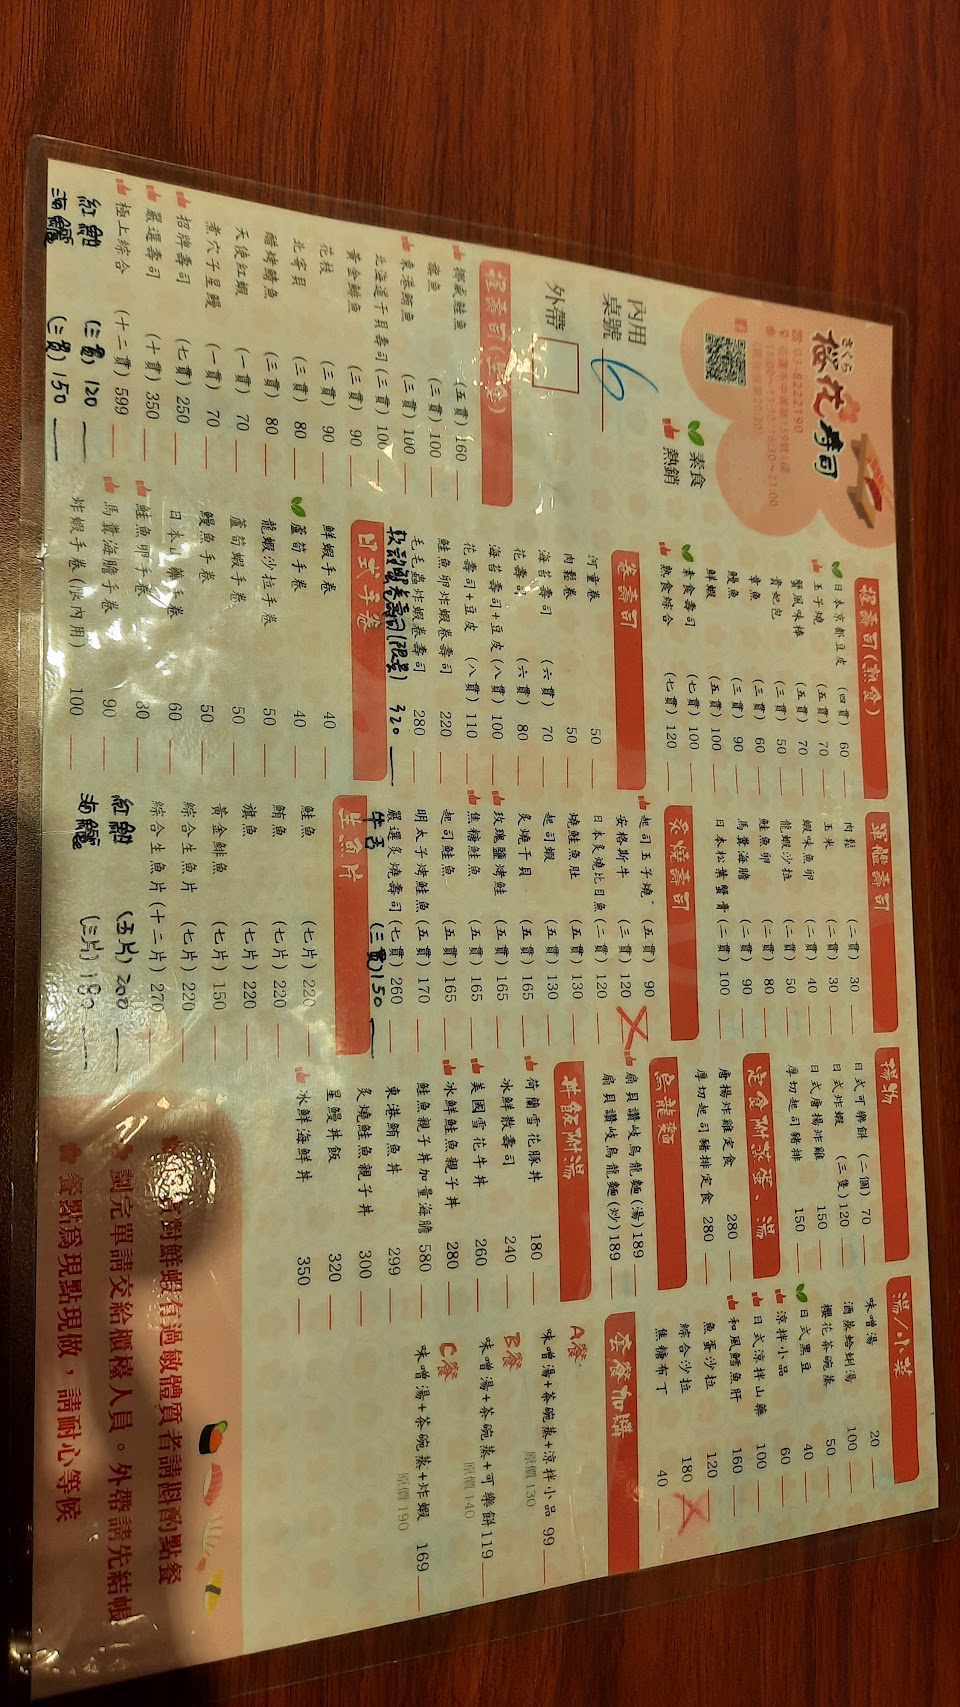 さくら
櫻花壽司
03-9222190
16:30~21:00
內用
桌號 6
外帶
素食
熱銷
握壽司(生食)
挪威鮭魚 (五貫) 160
旗魚 (三貫) 100
東港鮪魚 (三貫) 100
北海道干貝壽司 (三貫) 100
黃金鯡魚 (三貫) 90
花枝 (三貫) 90
北寄貝 (三貫) 80
醋烤鯖魚 (三貫) 80
天使紅蝦 (一貫) 70
煮穴子星鰻 (一貫) 70
招牌壽司 (七貫) 250
嚴選壽司 (十貫) 350
極上綜合 (十二貫) 599
紅魽 (三貫) 120
海鱺 (三貫) 150
握壽司(熟食)
日本京都豆皮 (四貫) 60
玉子燒 (五貫) 70
蟹風味棒 (五貫) 70
青妃包 (三貫) 50
章魚 (三貫) 60
鰻魚 (三貫) 90
鮮蝦 (五貫) 100
素食壽司 (七貫) 100
熟食綜合 (七貫) 120
卷壽司
河童卷 50
肉鬆卷 50
海苔壽司 (六貫) 70
花壽司 (六貫) 80
海苔壽司+豆皮 (八貫) 100
花壽司+豆皮 (八貫) 110
鮭魚卵炸蝦卷壽司 220
毛毛蟲炸蝦卷壽司 280
軟殼蟹卷壽司(限量) 320
日式手卷
鮮蝦手卷 40
蘆筍手卷 40
龍蝦沙拉手卷 50
蘆筍蝦手卷 50
鰻魚手卷 50
日本山藥手卷 60
鮭魚卵手卷 80
馬糞海膽手卷 90
炸蝦手卷(限內用) 100
軍艦壽司
肉鬆 (二貫) 30
玉米 (二貫) 30
蝦味魚卵 (二貫) 40
龍蝦沙拉 (二貫) 50
鮭魚卵 (二貫) 80
馬糞海膽 (二貫) 90
日本松葉蟹膏 (二貫) 100
炙燒壽司
起司玉子燒 (五貫) 90
安格斯牛 (三貫) 120
日本炙燒比目魚 (二貫) 120
燒鮭魚肚 (五貫) 130
起司蝦 (五貫) 130
炙燒干貝 (五貫) 165
玫瑰鹽烤鮭 (五貫) 165
焦糖鮭魚 (五貫) 165
起司鮭魚 (五貫) 165
明太子烤鮭魚 (五貫) 170
嚴選炙燒壽司 (七貫) 260
牛舌 (三貫) 150
生魚片
鮭魚 (七片) 220
鮪魚 (七片) 220
旗魚 (七片) 220
黃金鯡魚 (七片) 150
綜合生魚片 (七片) 220
綜合生魚片 (十二片) 270
紅魽 (五片) 200
海鱺 (三片) 180
揚物
日式可樂餅 (二個) 70
日式炸蝦 (三隻) 120
日式唐揚炸雞 150
厚切起司豬排 150
定食附蒸蛋、湯
唐揚炸雞定食 280
厚切起司豬排定食 280
烏龍麵
扇貝讚岐烏龍麵(湯) 189
扇貝讚岐烏龍麵(炒) 189
丼飯附湯
荷蘭雪花豚丼 180
冰鮮散壽司 240
美國雪花牛丼 260
冰鮮鮭魚親子丼 280
鮭魚親子丼加量海膽 580
東港鮪魚丼 299
炙燒鮭魚親子丼 300
星鰻丼飯 320
冰鮮海鮮丼 350
湯/小菜
味噌湯 20
酒蒸蛤蜊湯 100
櫻花茶碗蒸 50
日式黑豆 40
涼拌小品 60
日式涼拌山藥 100
和風鱈魚肝 160
魚蛋沙拉 120
綜合沙拉 180
焦糖布丁 40
套餐加購
A餐
味噌湯+茶碗蒸+涼拌小品 99
原價130
B餐
味噌湯+茶碗蒸+可樂餅 119
原價140
C餐
味噌湯+茶碗蒸+炸蝦 169
原價190
對鮮蝦有過敏體質者請斟酌點餐
劃完單請交給櫃檯人員。外帶請先結帳
餐點為現點現做,請耐心等候